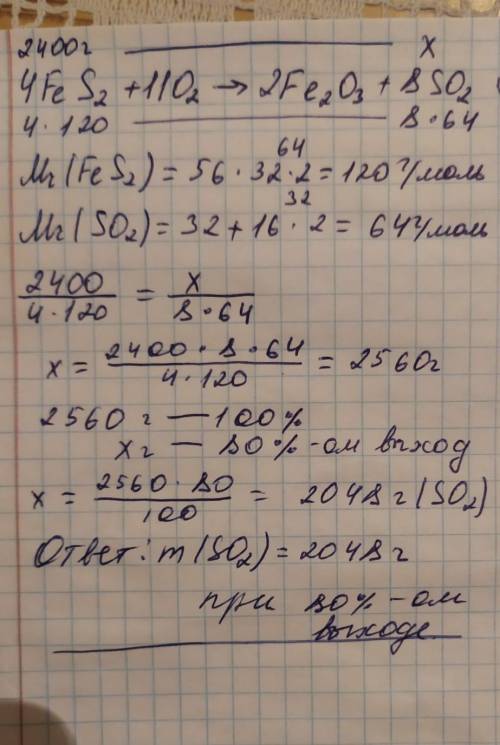 2400г — x
4FeS₂ + 11O₂ → 2Fe₂O₃ + 8SO₂
4·120 — 8·64
64
Mr(FeS₂) = 56·32·2 = 120г/моль
32
Mr(SO₂) = 32+16·2 = 64г/моль
2400/4·120 = x/8·64
x = 2400·8·64/4·120 = 2560г
2560г — 100%
xг — 80%-ом выход
x = 2560·80/100 = 2048г(SO₂)
Ответ: m(SO₂) = 2048г
при 80%-ом
выходе